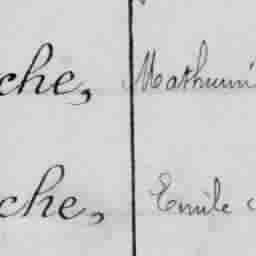 che, Mathurin
che, Emile